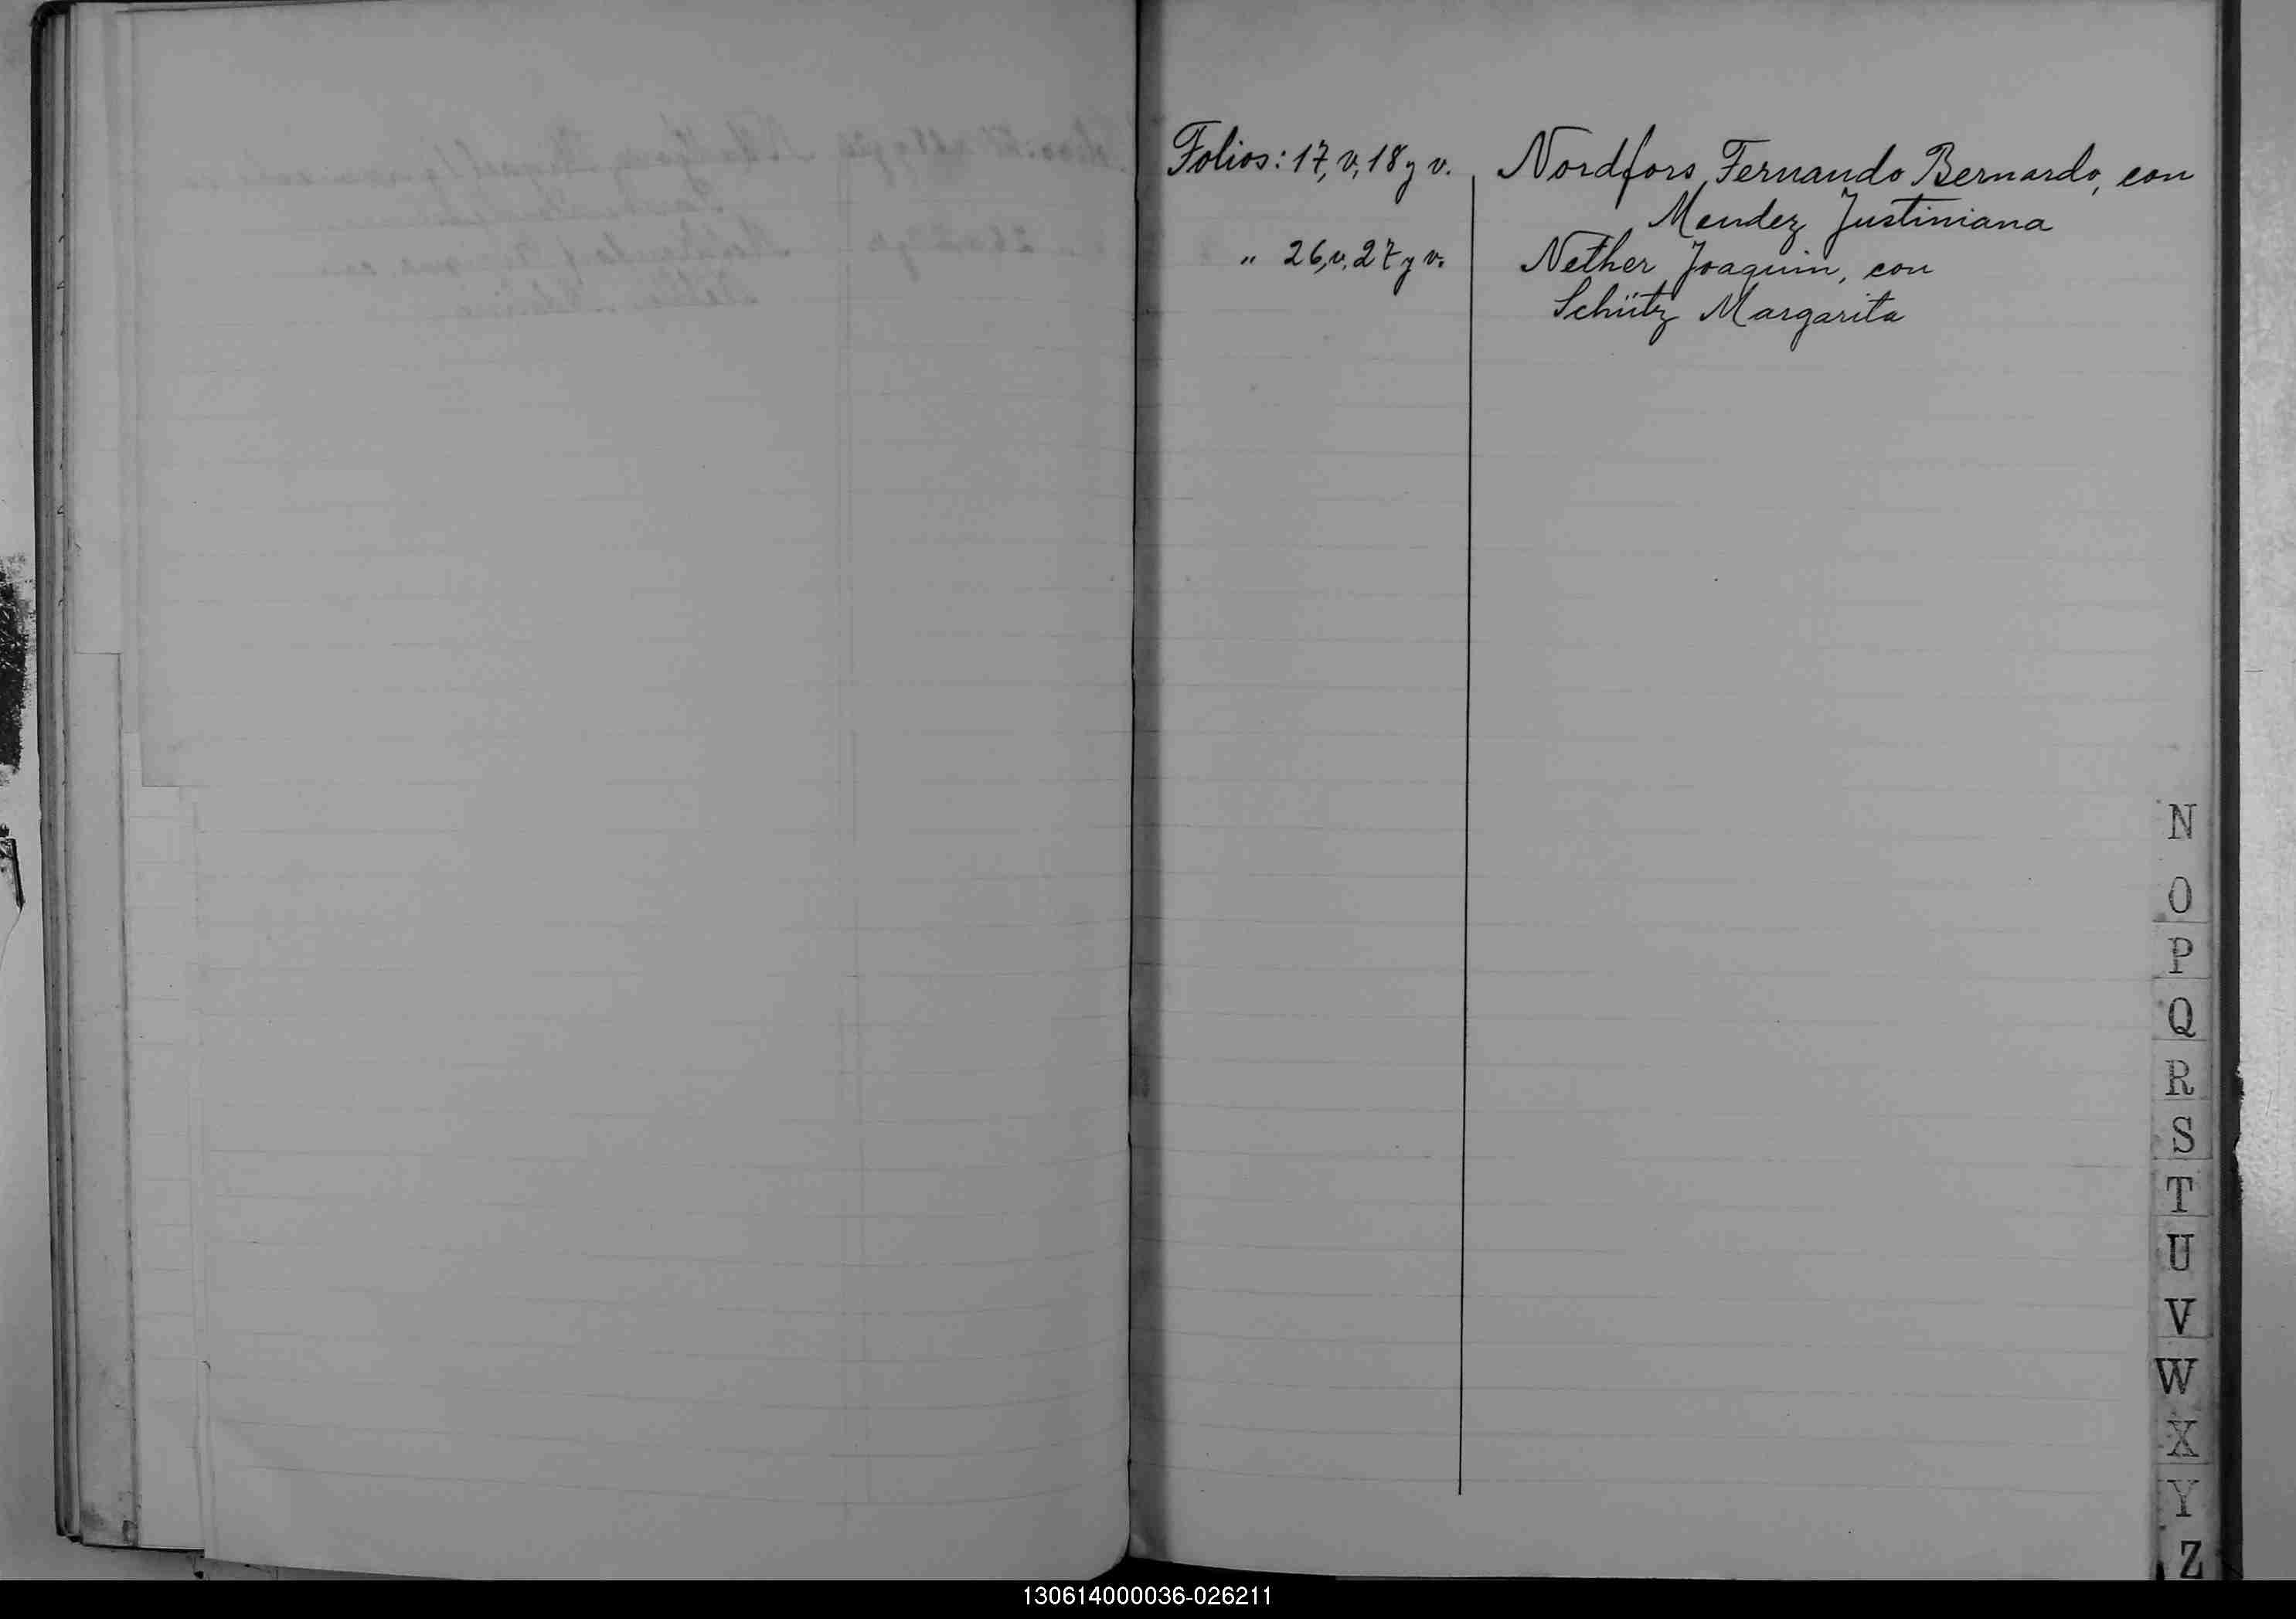 Folios: 17, v, 18 y v. Nordfors, Fernando Bernardo, con
Mendez Justiniana
" 26, v, 27 y v. Nether Joaquin, con
Schütz Margarita
N
O
P
Q
R
S
T
U
V
W
X
Y
Z
130614000036-026211